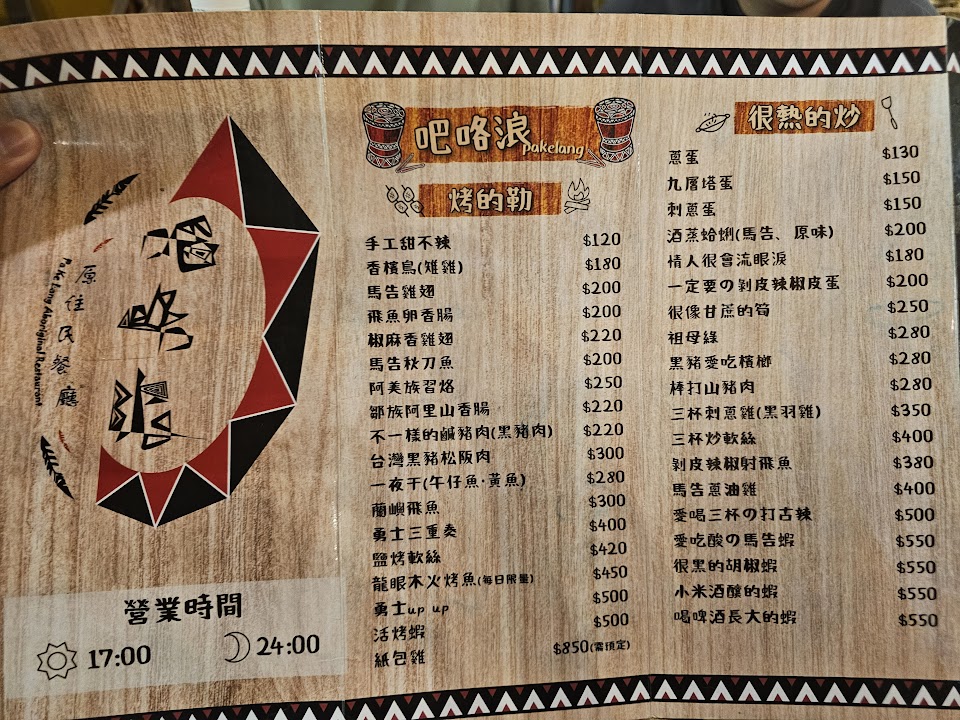 吧咯浪
原住民餐廳
Pa ke Lang Aboriginal Restaurant
營業時間
17:00 24:00
吧咯浪
Pakelang
烤的勒
手工甜不辣 $120
香檳鳥(雉雞) $180
馬告雞翅 $200
飛魚卵香腸 $200
椒麻香雞翅 $220
馬告秋刀魚 $200
阿美族習烙 $250
鄒族阿里山香腸 $220
不一樣的鹹豬肉(黑豬肉) $220
台灣黑豬松阪肉 $300
一夜干(午仔魚·黃魚) $280
蘭嶼飛魚 $300
勇士三重奏 $400
鹽烤軟絲 $420
龍眼木火烤魚(每日限量) $450
勇士up up $500
活烤蝦 $500
紙包雞 $850(需預定)
很熱的炒
蔥蛋 $130
九層塔蛋 $150
刺蔥蛋 $150
酒蒸蛤蜊(馬告、原味) $200
情人很會流眼淚 $180
一定要の剝皮辣椒皮蛋 $200
很像甘蔗的筍 $250
祖母綠 $280
黑豬愛吃檳榔 $280
棒打山豬肉 $280
三杯刺蔥雞(黑羽雞) $350
三杯炒軟絲 $400
剝皮辣椒射飛魚 $380
馬告蔥油雞 $400
愛喝三杯の打古辣 $500
愛吃酸の馬告蝦 $550
很黑的胡椒蝦 $550
小米酒釀的蝦 $550
喝啤酒長大的蝦 $550